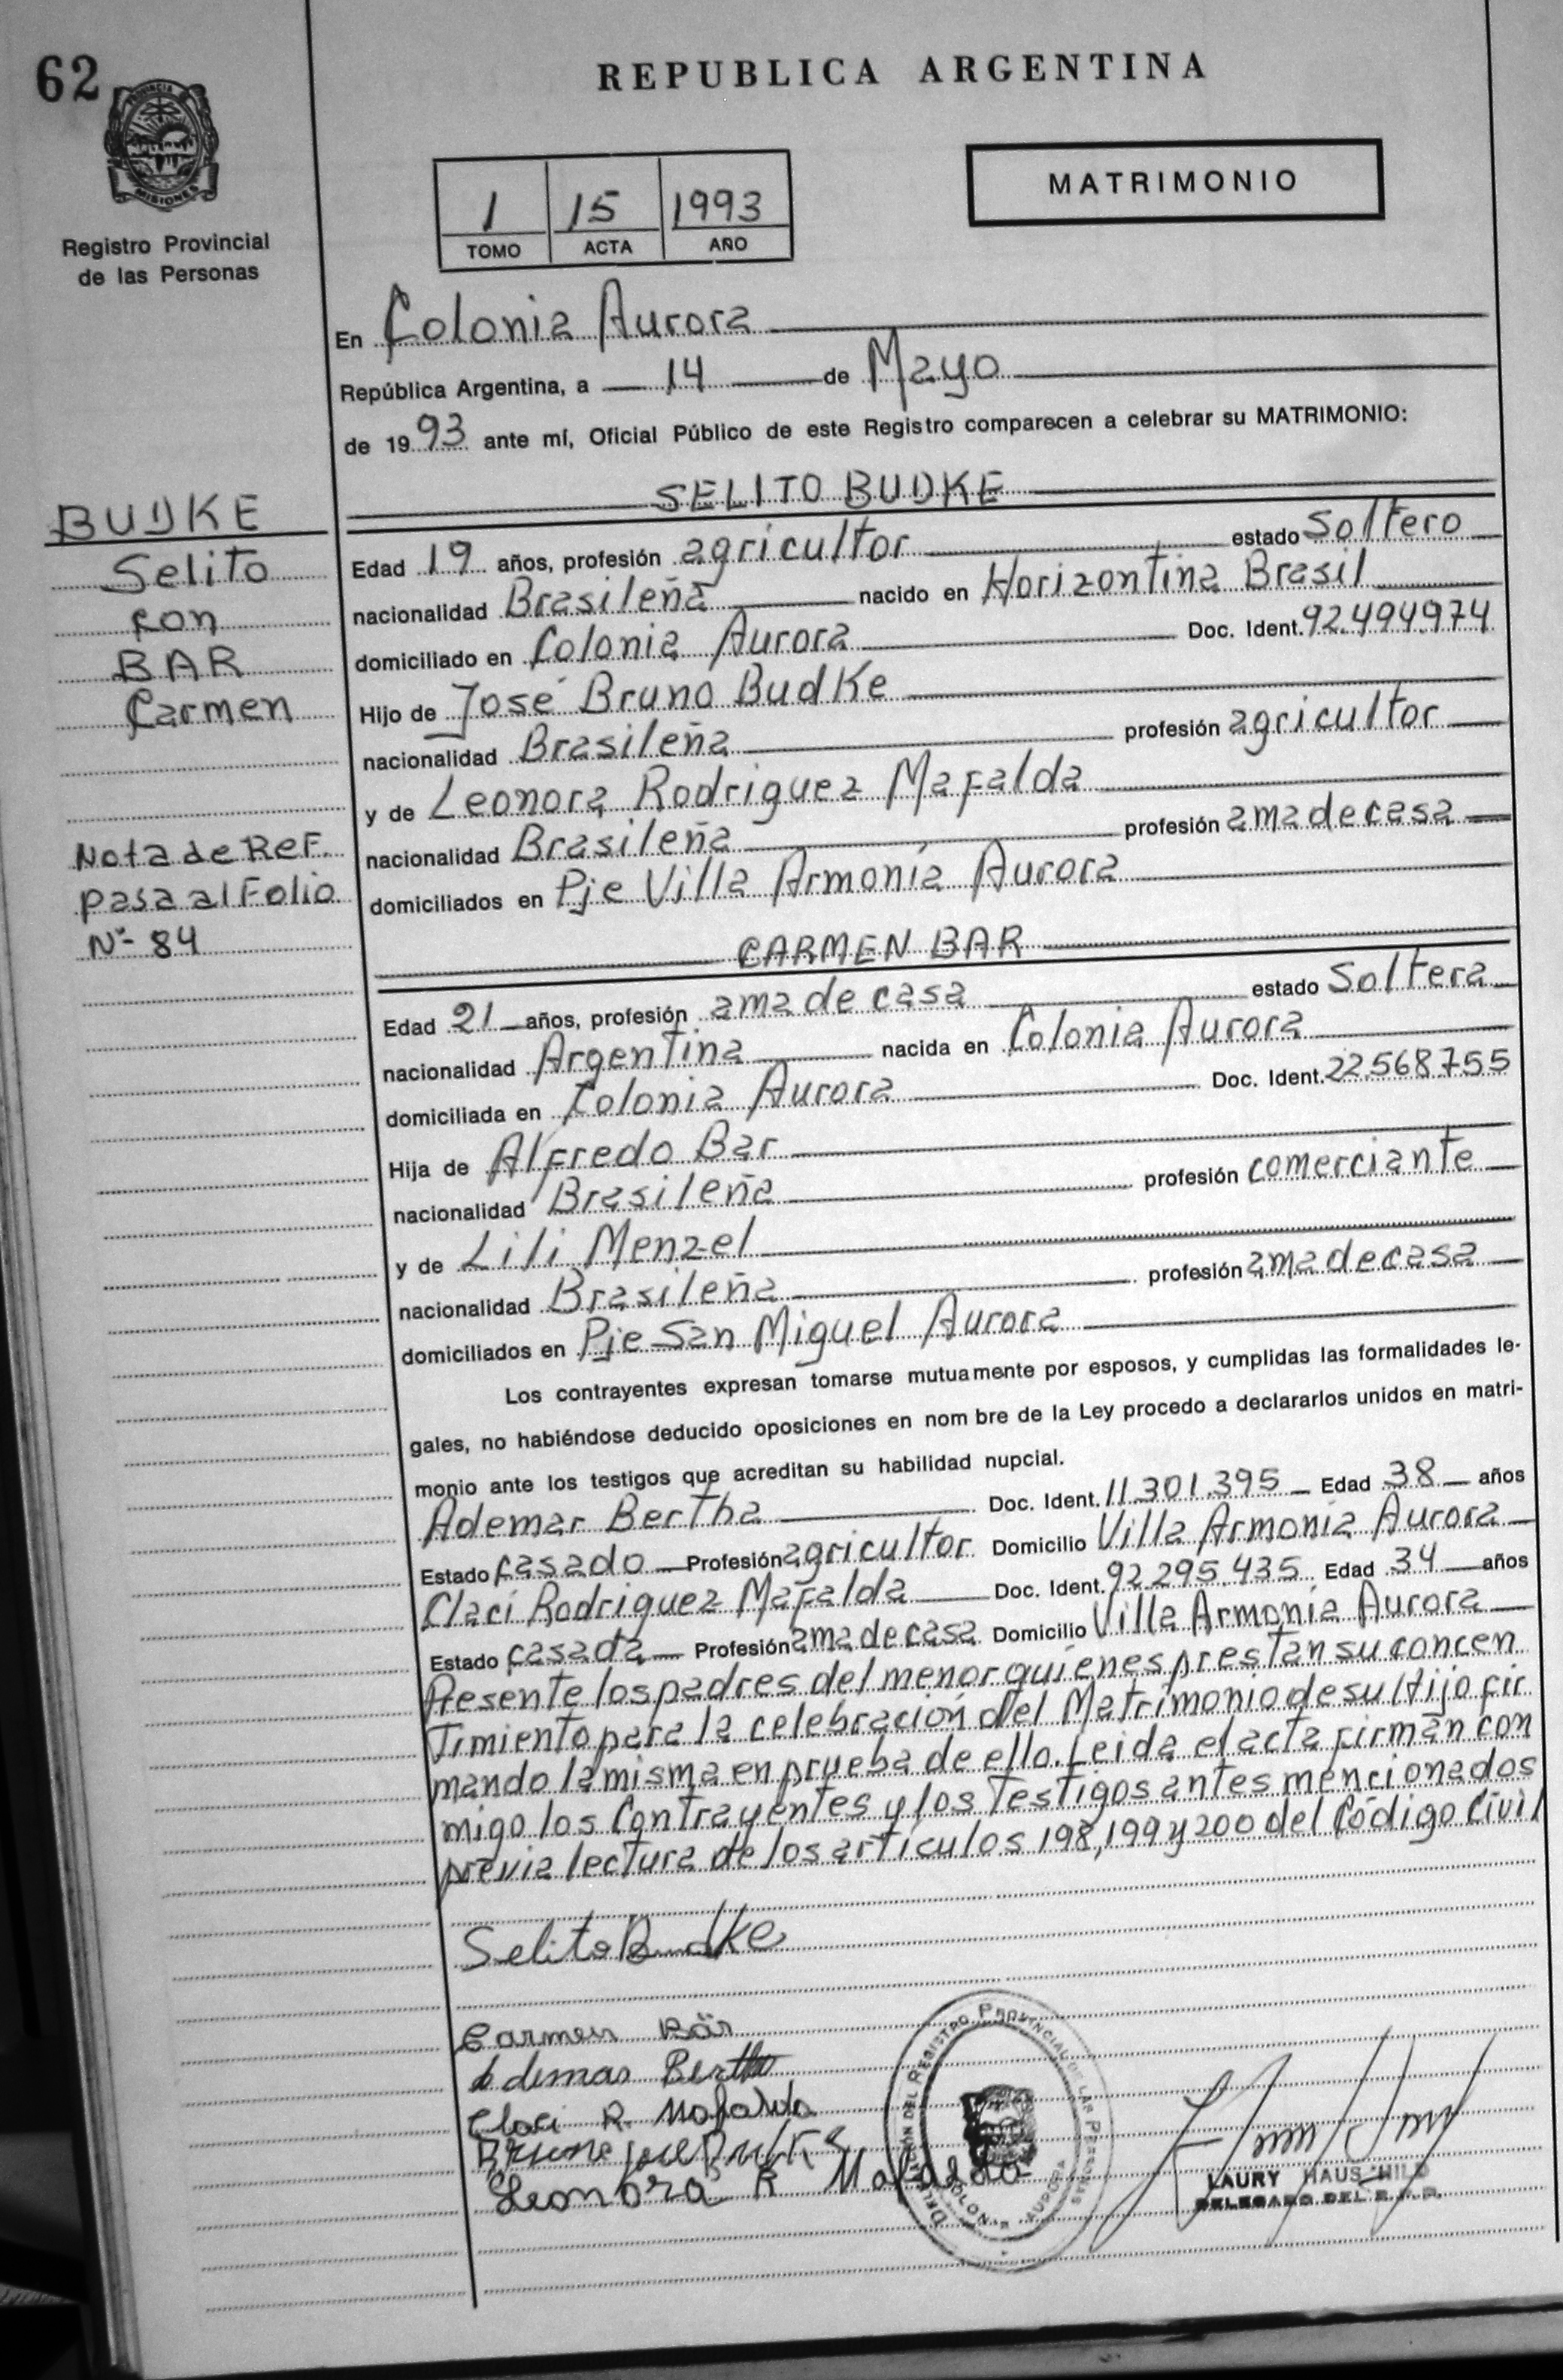 62
REPUBLICA ARGENTINA
PROVINCIA DE
MISIONES
Registro Provincial
de las Personas
1 15 1993
TOMO ACTA AÑO
MATRIMONIO
En Colonia Aurora
República Argentina, a 14 de Mayo
de 1993 ante mí, Oficial Público de este Registro comparecen a celebrar su MATRIMONIO:
BUDKE
Selito
con
BAR
Carmen
Nota de Ref.
pasa al Folio
Nº 84
SELITO BUDKE
Edad 19 años, profesión agricultor estado Soltero
nacionalidad Brasileña nacido en Horizontina Brasil
domiciliado en Colonia Aurora Doc. Ident. 92.494.974
Hijo de José Bruno Budke
nacionalidad Brasileña profesión agricultor
y de Leonora Rodriguez Mafalda
nacionalidad Brasileña profesión ama de casa
domiciliados en Pje Villa Armonía Aurora
CARMEN BAR
Edad 21 años, profesión ama de casa estado Soltera
nacionalidad Argentina nacida en Colonia Aurora
domiciliada en Colonia Aurora Doc. Ident. 22.568.755
Hija de Alfredo Bar
nacionalidad Brasileña profesión comerciante
y de Lili Menzel
nacionalidad Brasileña profesión ama de casa
domiciliados en Pje San Miguel Aurora
Los contrayentes expresan tomarse mutuamente por esposos, y cumplidas las formalidades le-
gales, no habiéndose deducido oposiciones en nom bre de la Ley procedo a declararlos unidos en matri-
monio ante los testigos que acreditan su habilidad nupcial.
Ademar Bertha Doc. Ident. 11.301.395 Edad 38 años
Estado casado Profesión agricultor Domicilio Villa Armonía Aurora
Claci Rodriguez Mafalda Doc. Ident. 92.295.435 Edad 34 años
Estado casada Profesión ama de casa Domicilio Villa Armonía Aurora
Presente los padres del menor quienes prestan su concen
timiento para la celebración del Matrimonio de su Hijo fir
mando la misma en prueba de ello. Leida el acta firman con
migo los Contrayentes y los Testigos antes mencionados
previa lectura de los artículos 198, 199 y 200 del Código Civil
Selito Budke
Carmen Bär
Ademar Bertha
Claci R. Mafalda
Bruno José Budke
Leonora R Mafalda
DELEGACION DEL REGISTRO PROVINCIAL DE LAS PERSONAS
COLONIA AURORA
LAURY HAUSCHILD
DELEGADO DEL R.P.P.